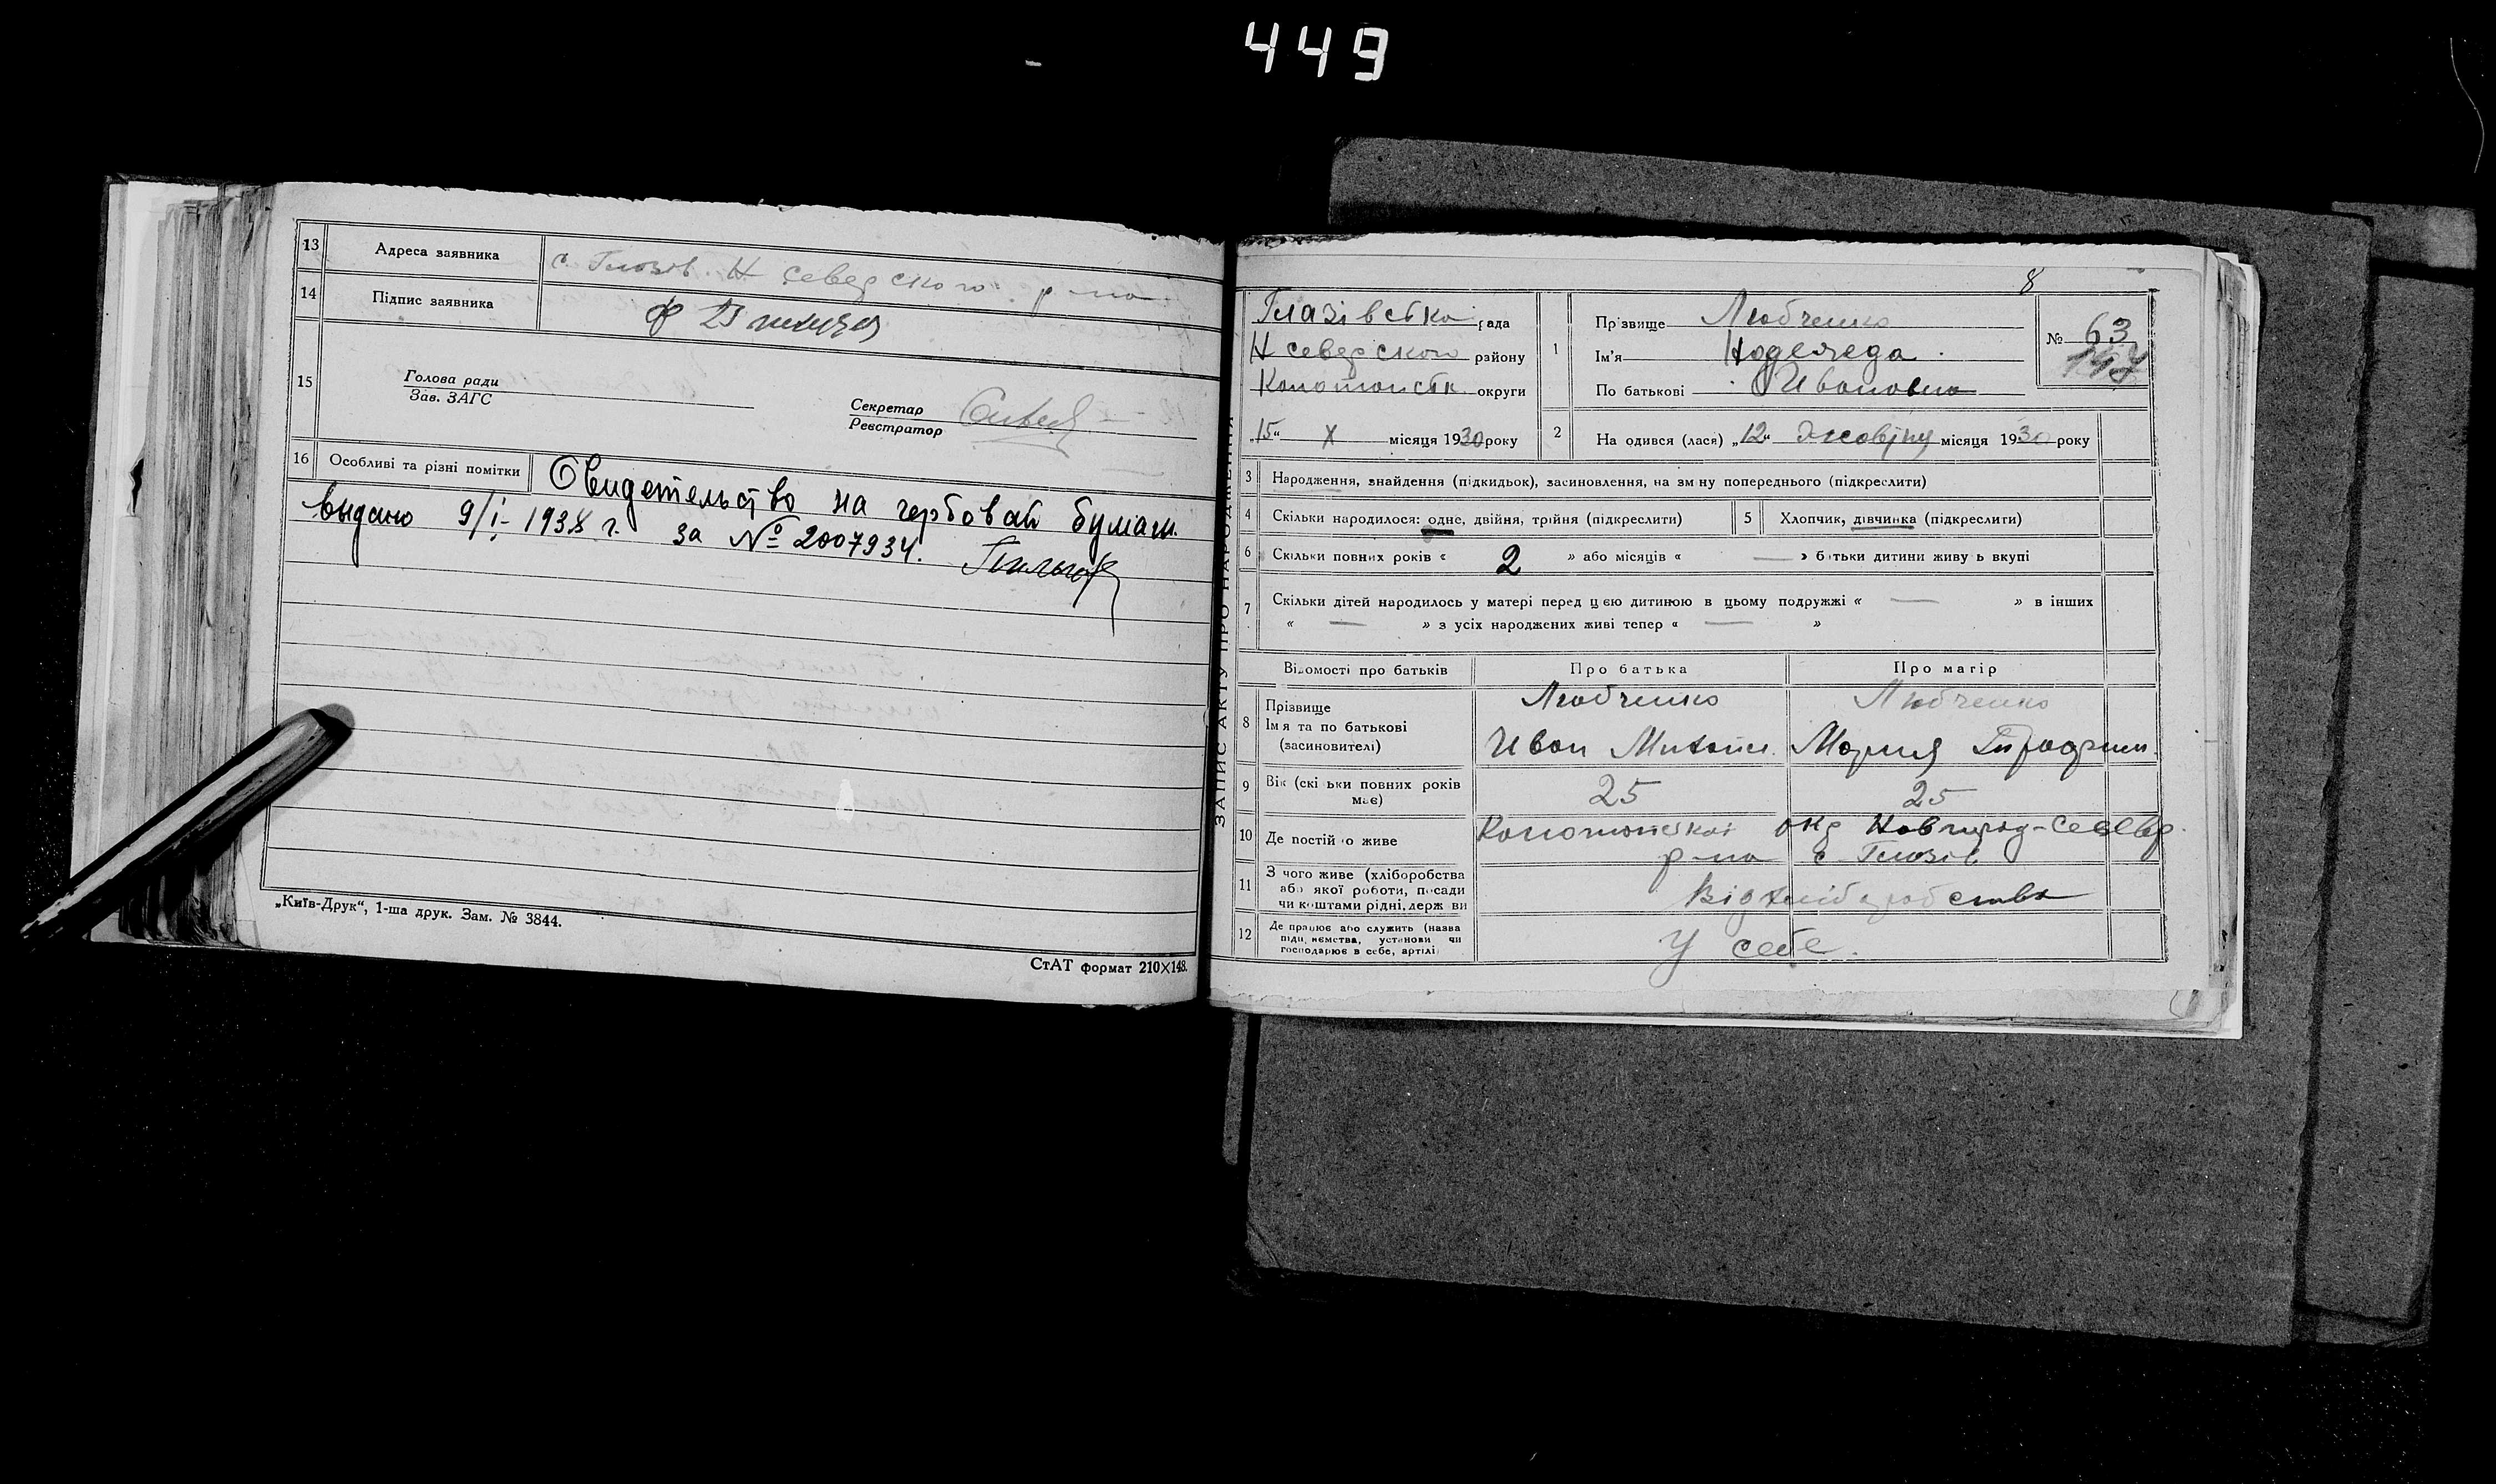 449
13 Адреса заявника с. Глозов. Н северского р-на
14 Підпис заявника
15 Голова ради
Зав. ЗАГС
Секретар
Реєстратор
16 Особливі та різні помітки Свидетельство на гербовай бумаги
выдано 9/I-1938 г. за № 2007934.
„Київ-Друк“, 1-ша друк. Зам. № 3844.
СтАТ формат 210×148.
ЗАПИС АКТУ ПРО НАРОДЖЕННЯ
8
Глазівська рада
Н северского району
Конотопськ округи
„15“ X місяця 1930 року
1 Прізвище Любченко
Ім'я Надежеда
По батькові Ивановна
№ 63
147
2 На одився (лася) „12“ Жовтня місяця 1930 року
3 Народження, знайдення (підкидьок), засиновлення, на зміну попереднього (підкреслити)
4 Скільки народилося: одне, двійня, трійня (підкреслити) 5 Хлопчик, дівчинка (підкреслити)
6 Скільки повних років « 2 » або місяців « — » батьки дитини живу ь вкупі
7 Скільки дітей народилось у матері перед цею дитиною в цьому подружжі « — » в інших
« — » з усіх народжених живі тепер « — »
Відомості про батьків Про батька Про матір
8 Прізвище
Ім я та по батькові
(засиновителі)
Любченко Любченко
Иван Михайл. Мария
9 Вік (скільки повних років має) 25 25
10 Де постійно живе Конотопськоі окр Новгород-Север.
р-на с. Глозів
11 З чого живе (хліборобства
або якої роботи, посади
чи коштами рідні, держ ви
Від хліборобства
12 Де працює або служить (назва
підприємства, установи чи
господарює в себе, артілі
У себе.